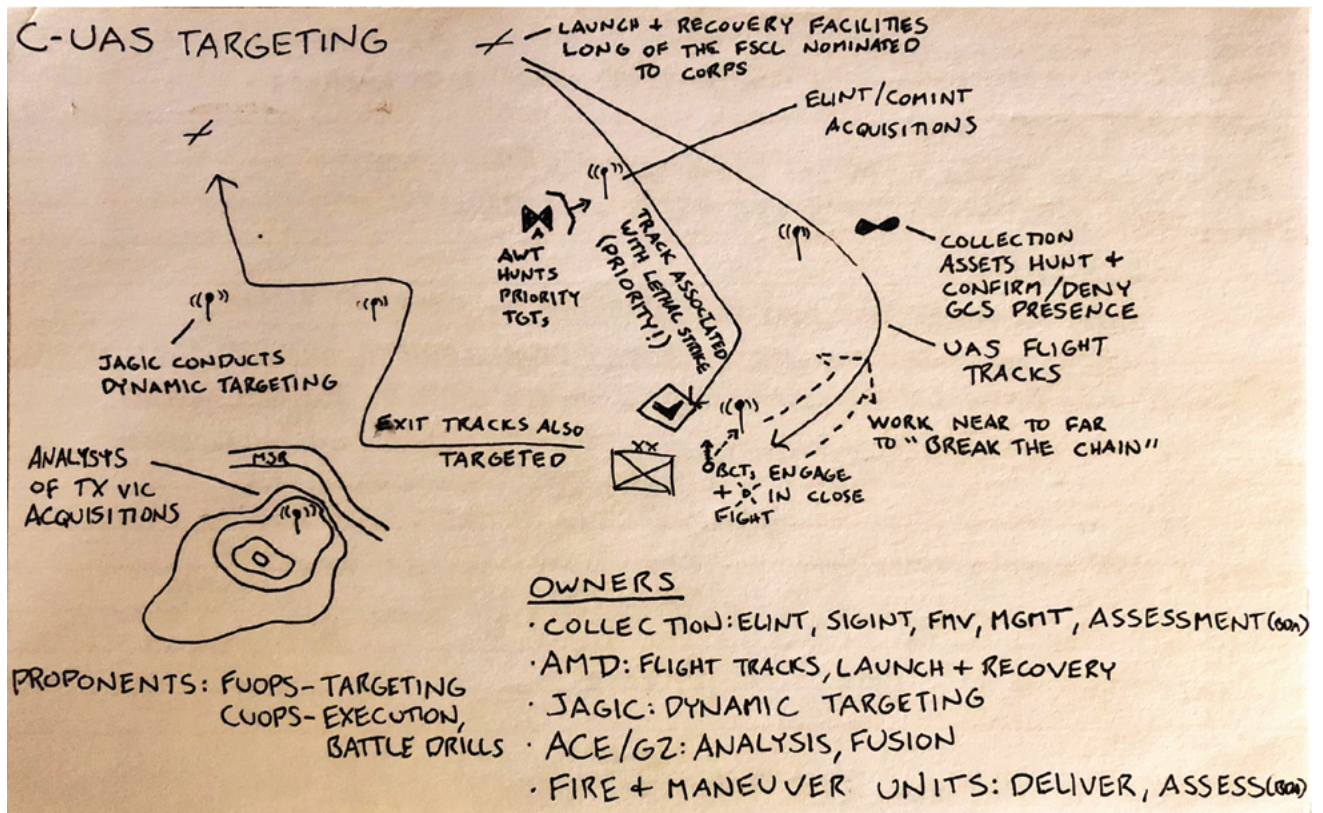 C-UAS TARGETING
LAUNCH + RECOVERY FACILITIES
LONG OF THE FSCL NOMINATED
TO CORPS
ELINT/COMINT
ACQUISITIONS
AWT
HUNTS
PRIORITY
TGTs
TRACK ASSOCIATED
WITH LETHAL STRIKE
(PRIORITY!)
COLLECTION
ASSETS HUNT +
CONFIRM/DENY
GCS PRESENCE
UAS FLIGHT
TRACKS
JAGIC CONDUCTS
DYNAMIC TARGETING
EXIT TRACKS ALSO
TARGETED
WORK NEAR TO FAR
TO "BREAK THE CHAIN"
XX
BCTs ENGAGE
+ IN CLOSE
FIGHT
MSR
ANALYSYS
OF TX VIC
ACQUISITIONS
OWNERS
· COLLECTION: ELINT, SIGINT, FMV, MGMT, ASSESSMENT (BDA)
· AMD: FLIGHT TRACKS, LAUNCH + RECOVERY
· JAGIC: DYNAMIC TARGETING
· ACE/G2: ANALYSIS, FUSION
· FIRE + MANEUVER UNITS: DELIVER, ASSESS (BDA)
PROPONENTS: FUOPS - TARGETING
CUOPS - EXECUTION,
BATTLE DRILLS